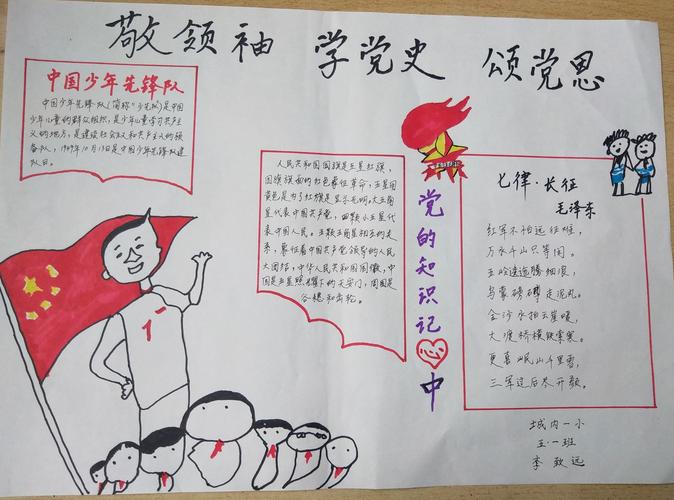 敬领袖 学党史 颂党恩
中国少年先锋队
中国少年先锋队(简称"少先队)是中国
少年儿童的群众组织,是少年儿童学习共产主
义的地方,是建设社会主义和共产主义的预
备队,1949年10月13日是中国少年先锋队建
队日。
人民共和国国旗是五星红旗,
国旗旗面的红色象征革命,五星用
黄色是为了红旗显示光明,大五角星
代表中国共产党,四颗小五星代
表中国人民。五颗五角星相互的关
系,象征着中国共产党领导的人民
大团结,中华人民共和国国徽,中
间是五星照耀下的天安门,周围是
谷穗和齿轮。
党的知识记心中
七律·长征
毛泽东
红军不怕远征难,
万水千山只等闲。
五岭逶迤腾细浪,
乌蒙磅礴走泥丸。
金沙水拍云崖暖,
大渡桥横铁索寒。
更喜岷山千里雪,
三军过后尽开颜。
城内一小
五·一班
李致远